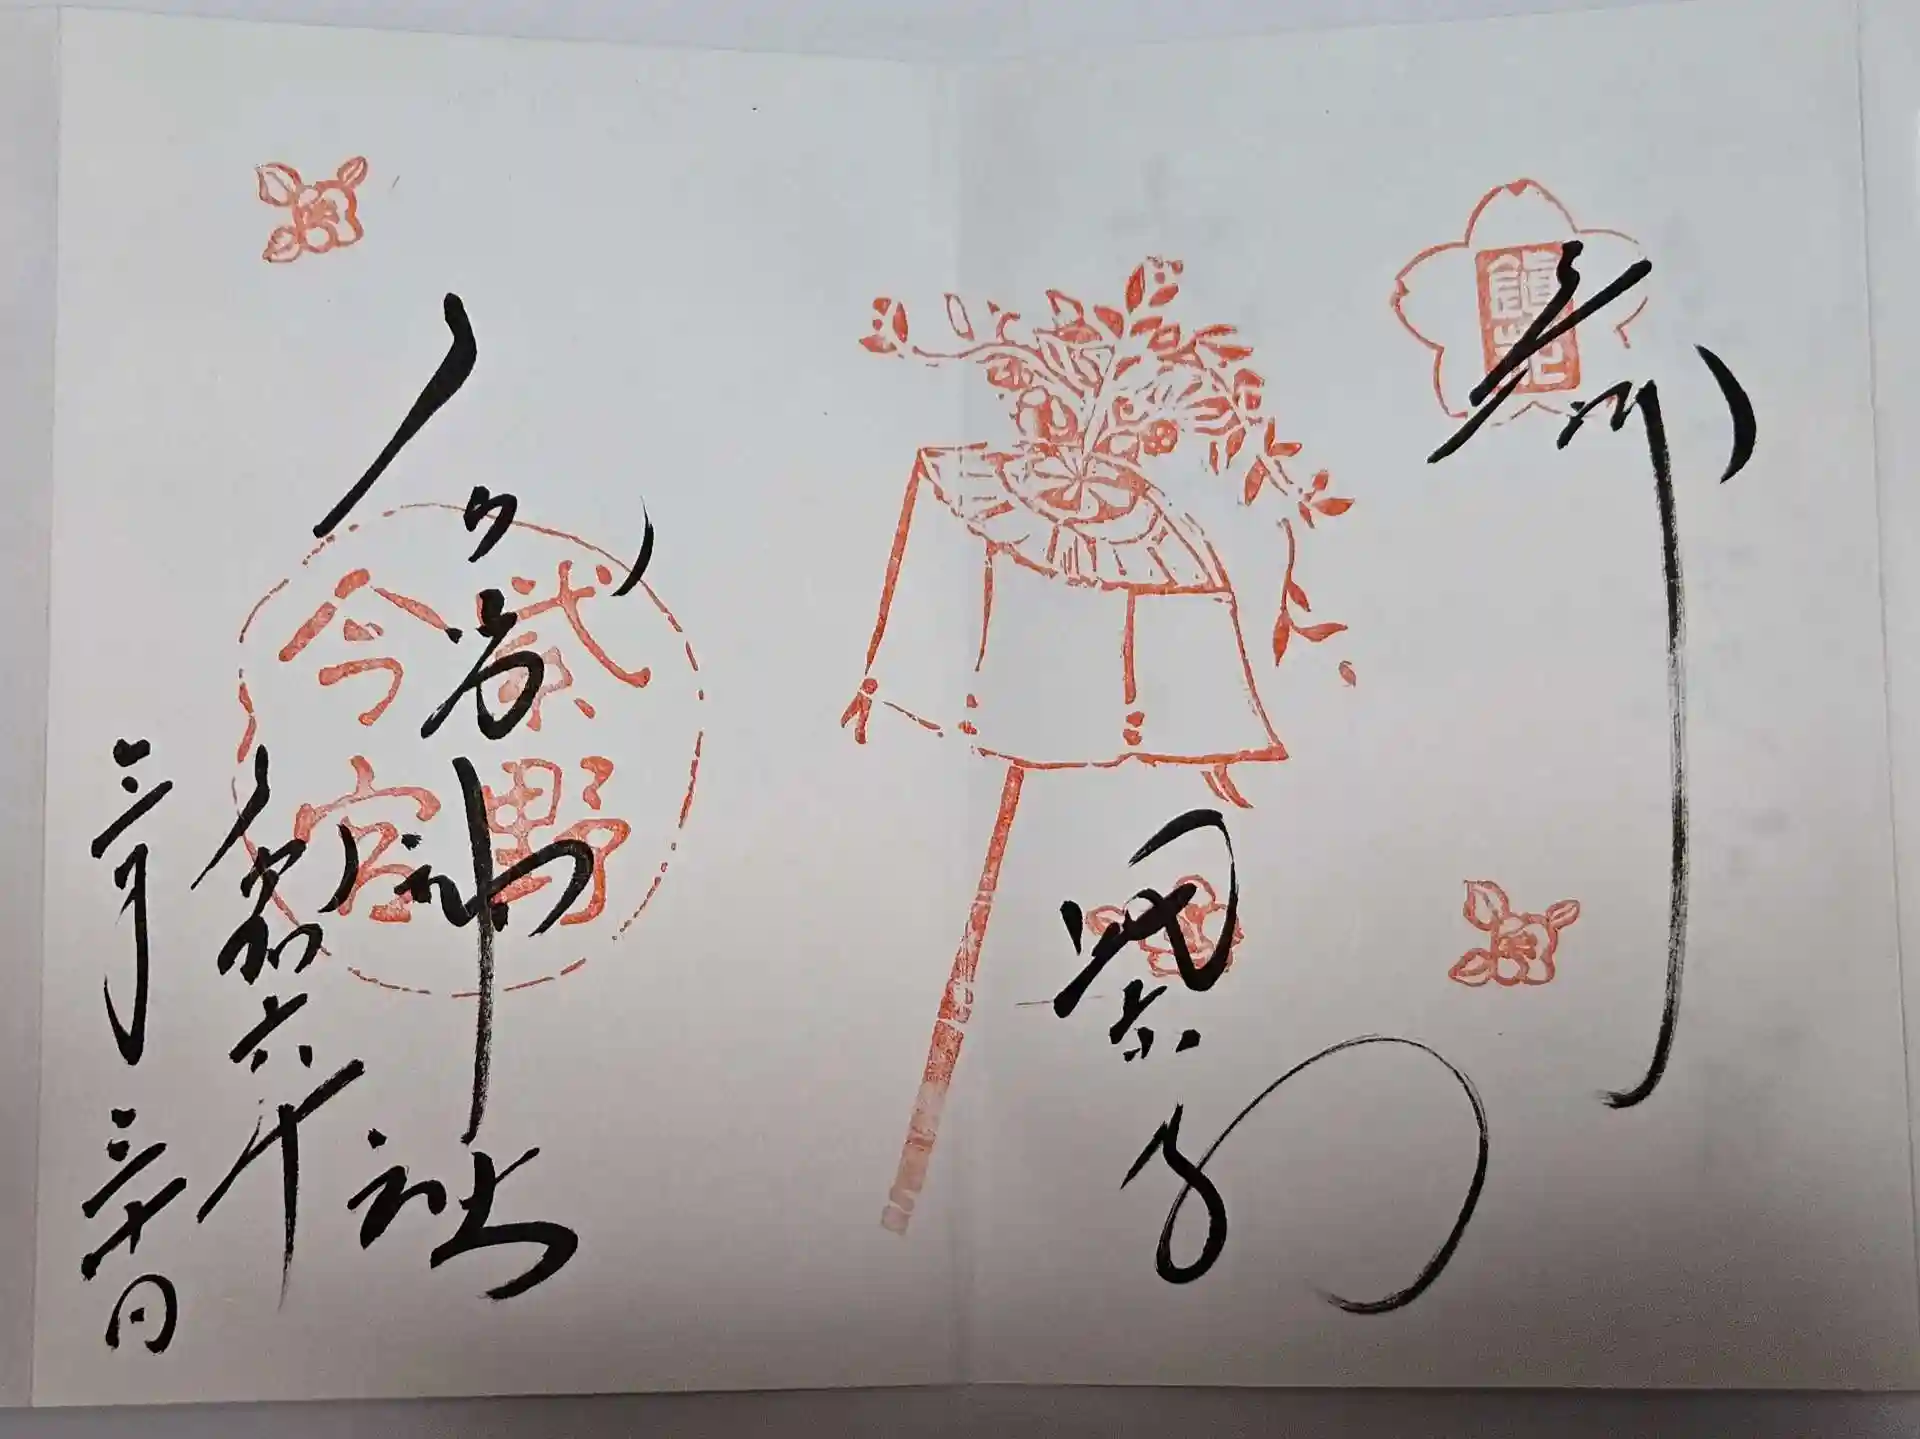 奉拝
鎮花
紫野
今宮神社
紫野
今宮
令和六年
三月三十日